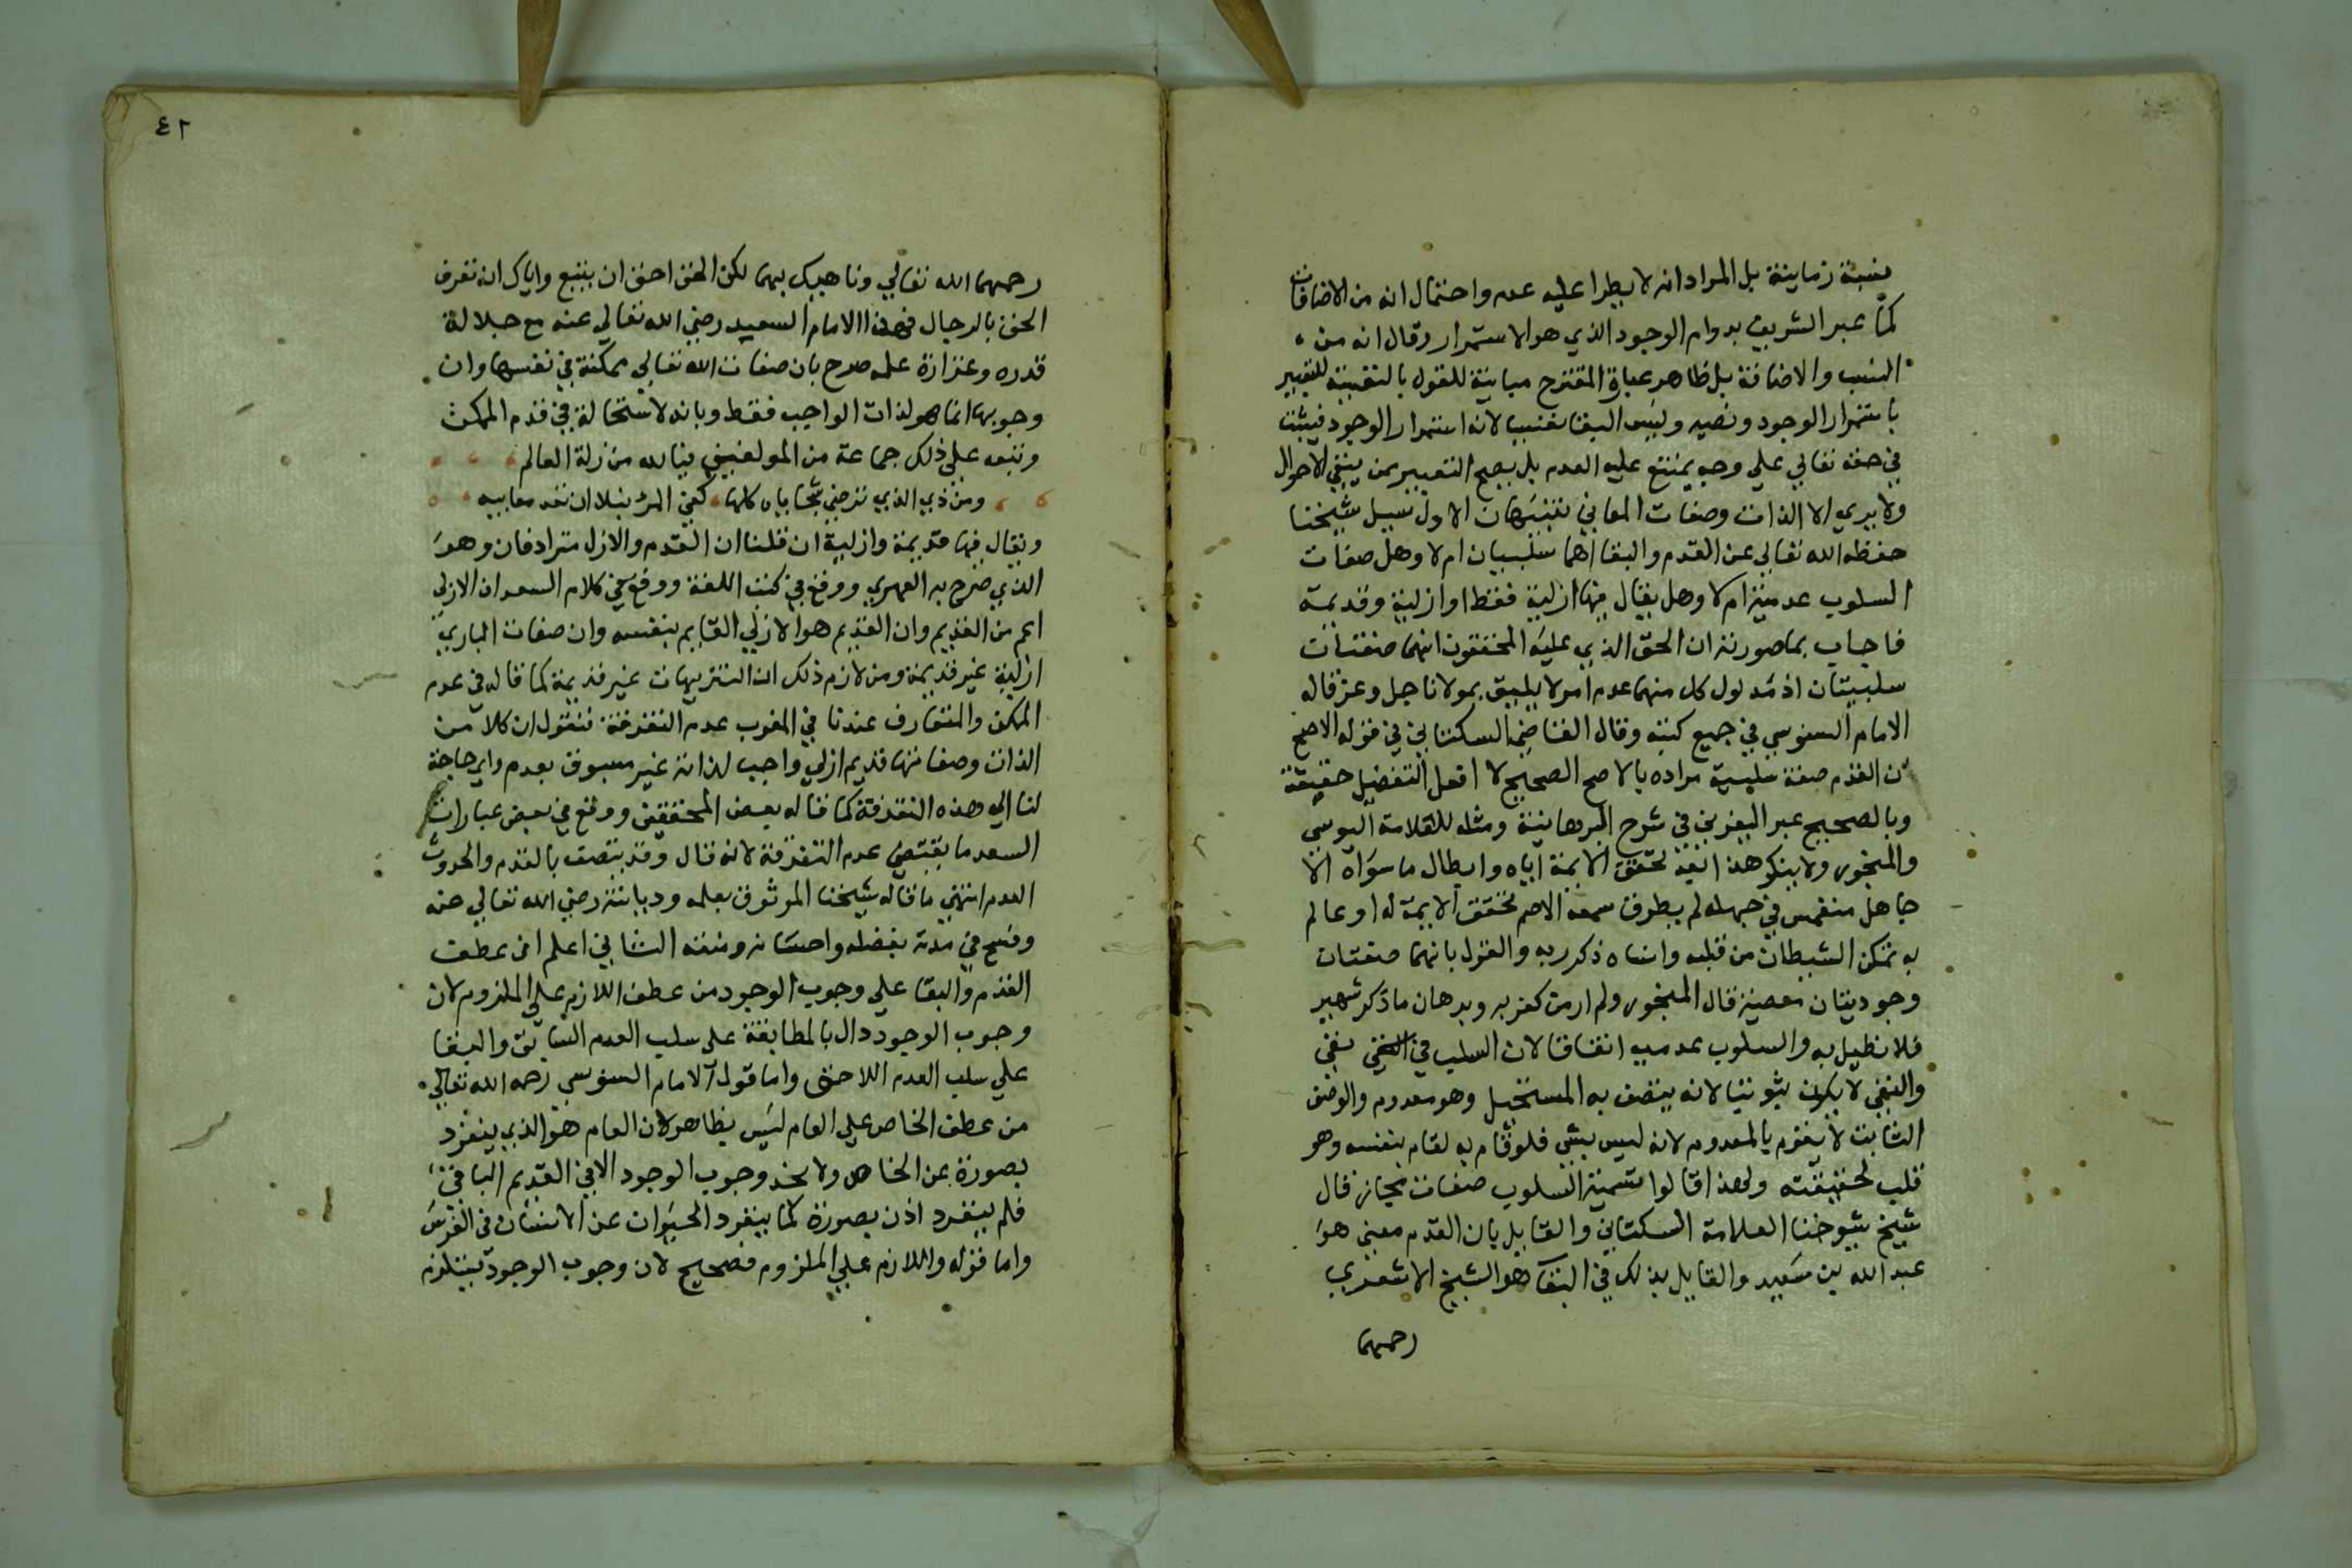 نسبة زمانية بل المراد انه لا يطرا عليه عدم واحتمال انه من الاضافات
كما عبر الشريف بدوام الوجود الذي هو الاستمرار وقال انه من
النسب والاضافة بل ظاهر عبارة المقترح مباينة للقول بالنفسية للتعبير
باستمرار الوجود ونصه وليس البقا بنفسي لانه استمرار الوجود فيثبت
في حقه تعالي علي وجه يمتنع عليه العدم بل يصح التعبير ممن ينفي الاحوال
ولا يري الا الذات وصفات المعاني تنبيهان الاول سيل شيخنا
حفظه الله تعالي عن القدم والبقا اهما سلبيان ام لا وهل صفات
السلوب عدمية ام لا وهل يقال فيها ازلية فقط او ازلية وقديمة
فاجاب بما صورته ان الحق الذي عليه المحققون انهما صفتان
سلبيتان اذ مدلول كل منهما عدم امر لا يليق بمولانا جل وعز قاله
الامام السنوسي في جميع كتبه وقال القاضي السكتاني في قوله الاصح
ان القدم صفة سلبية مراده بالاصح الصحيح لا افعل التفضيل حقيقة
وبالصحيح عبر اليفرني في شرح البرهانية ومثله للعلامة اليوسي
والمنجور ولا ينكر هذا بعد تحقق الايمة اياه وابطال ما سواه الا
جاهل منغمس في جهله لم يطرق سمعه الاصم تحقق الايمة له او عالم
به تمكن الشيطان من قلبه وانساه ذكر ربه والقول بانهما صفتان
وجوديتان معصية قال المنجور ولم ار من كفر به وبرهان ما ذكر شهير
فلا نطيل به والسلوب عدمية اتفاقا لان السلب في نفي
والنفي لا يكون ثبوتيا لانه يتصف به المستحيل وهو معدوم والوصف
الثابت لا يقوم بالمعدوم لانه ليس بشي فلو قام به لقام بنفسه وهو
قلب لحقيقته ولهذا قالوا تسمية السلوب صفات مجاز قال
شيخ شيوخنا العلامة السكتاني والقايل بان القدم معني هو
عبد الله بن سعيد والقايل بذلك في البقا هو الشيخ الاشعري
رحمهما
٤٢
رحمهما الله تعالي وناهيك بهما لكن الحق احق ان يتبع واياك ان تعرف
الحق بالرجال فهذا الامام السعيد رضي الله تعالي عنه مع جلالة
قدره وغزارة علمه صرح بان صفات الله تعالي ممكنة في نفسها وان
وجوبها انما هو لذات الواجب فقط وبانه لا استحالة في قدم الممكن
وتبعه علي ذلك جماعة من المولفين فيالله من زلة العالم
ومن ذي الذي ترضي سجاياه كلها كفي المرء نبلا ان تعد معايبه
ويقال فيها قديمة وازلية ان قلنا ان القدم والازل مترادفان وهو
الذي صرح به الفهري ووقع في كتب اللغة ووقع في كلام السعد ان الازلي
اعم من القديم وان القديم هو الازلي القايم بنفسه وان صفات الباري
ازلية غير قديمة ومن لازم ذلك ان التنزيهات غير قديمة كما قاله في عدم
الممكن والمتعارف عندنا في المغرب عدم التفرقة فنقول ان كلا من
الذات وصفاتها قديم ازلي واجب لذاته غير مسبوق بعدم واي حاجة
لنا الي هذه التفرقة كما قاله بعض المحققين ووقع في بعض عبارات
السعد ما يقتضي عدم التفرقة لانه قال وقد يتصف بالقدم والحدوث
العدم انتهي ما قاله شيخنا الموثوق بعلمه وديانته رضي الله تعالي عنه
وفسح في مدته بفضله واحسانه ومنه الثاني اعلم ان عطف
القدم والبقا علي وجوب الوجود من عطف اللازم علي الملزوم لان
وجوب الوجود دال بالمطابقة علي سلب العدم السابق والبقا
علي سلب العدم اللاحق واما قول الامام السنوسي رحمه الله تعالي
من عطف الخاص علي العام ليس بظاهر لان العام هو الذي ينفرد
بصورة عن الخاص ولا نجد وجوب الوجود الا في القديم الباقي
فلم ينفرد اذن بصورة كما ينفرد الحيوان عن الانسان في الفرس
واما قوله واللازم علي الملزوم فصحيح لان وجوب الوجود يستلزم